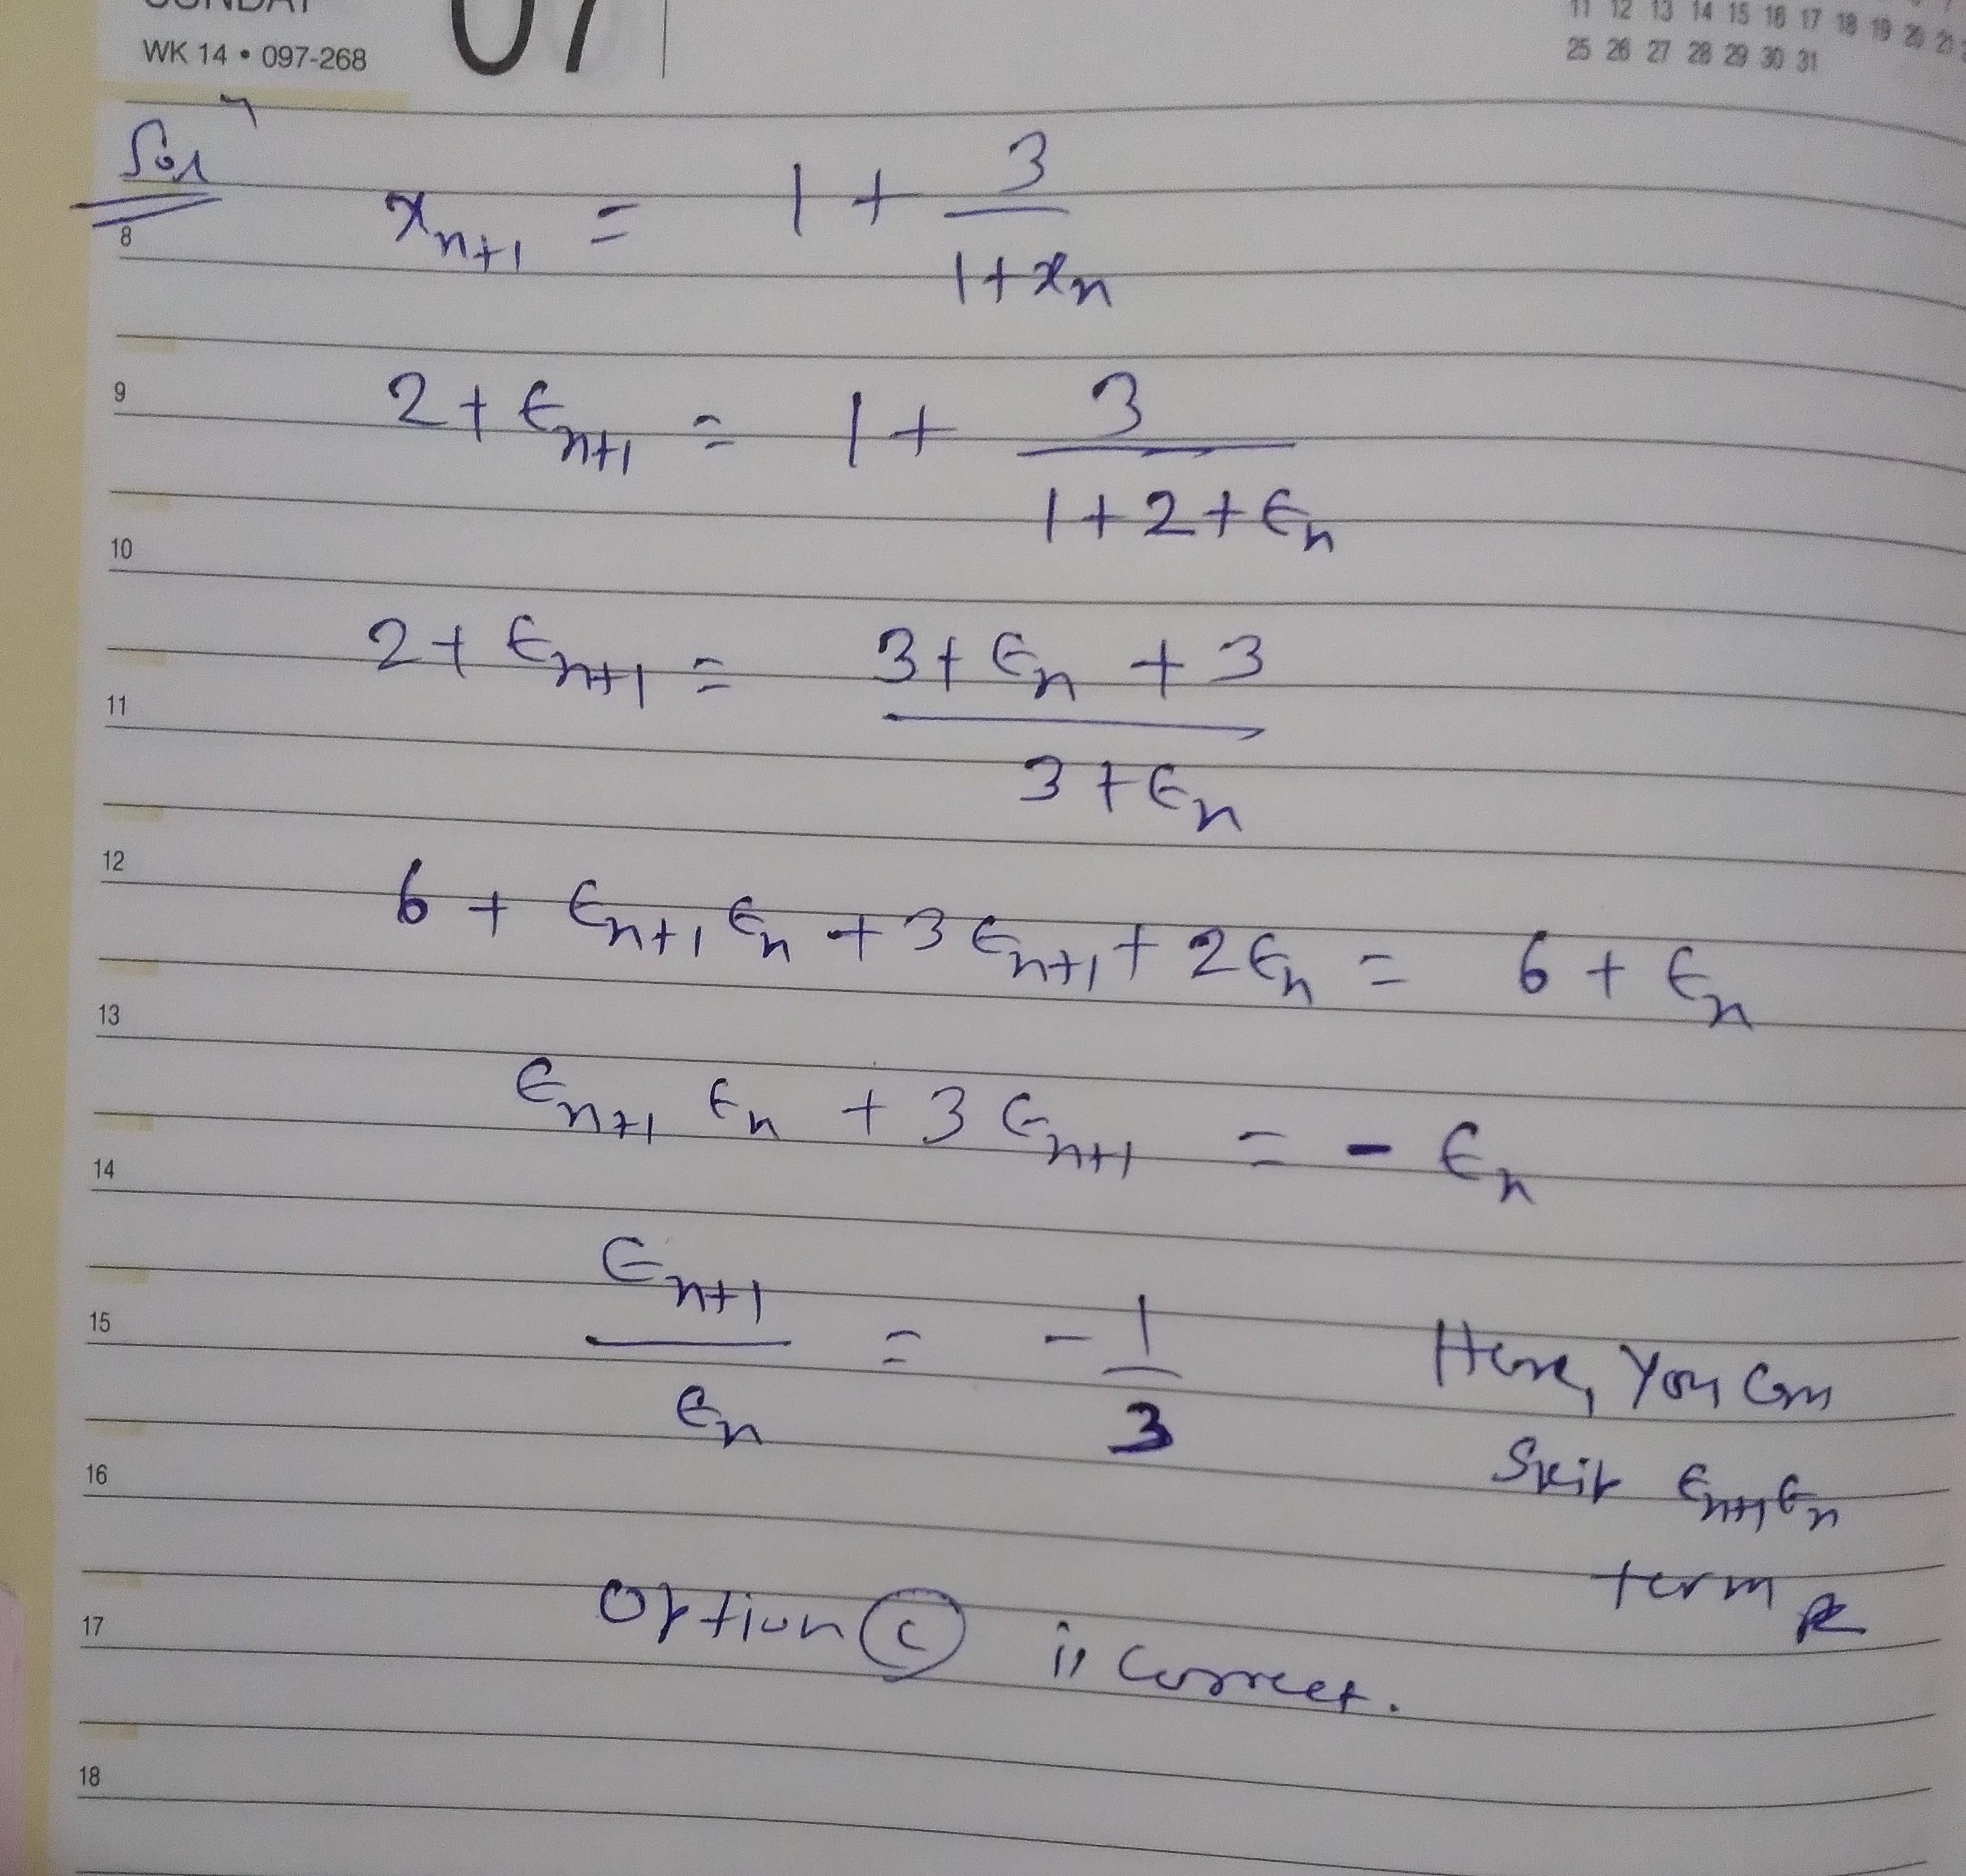 SUNDAY 07
WK 14 • 097-268
11 12 13 14 15 16 17 18 19 20 21
25 26 27 28 29 30 31
Sol^n
x_{n+1} = 1 + 3/(1+x_n)
8
9
2 + ϵ_{n+1} = 1 + 3/(1+2+ϵ_n)
10
2 + ϵ_{n+1} = (3+ϵ_n+3)/(3+ϵ_n)
11
12
6 + ϵ_{n+1} ϵ_n + 3ϵ_{n+1} + 2ϵ_n = 6 + ϵ_n
13
ϵ_{n+1} ϵ_n + 3ϵ_{n+1} = -ϵ_n
14
ϵ_{n+1}/ϵ_n = -1/3
15
Here, You can
Skip ϵ_{n+1}ϵ_n
term
16
Option (c) is correct.
17
18